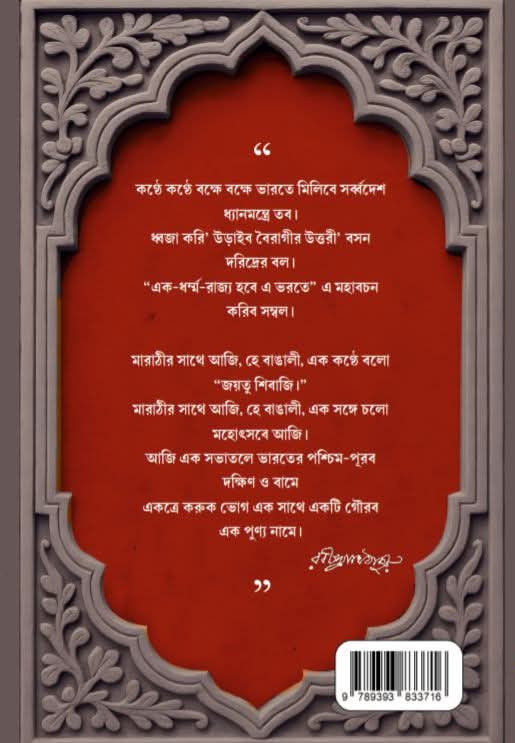 “
কণ্ঠে কণ্ঠে বক্ষে বক্ষে ভারতে মিলিবে সর্ব্বদেশ
ধ্যানমন্ত্রে তব।
ধ্বজা করি’ উড়াইব বৈরাগীর উত্তরী’ বসন
দরিদ্রের বল।
“এক-ধর্ম্ম-রাজ্য হবে এ ভরতে” এ মহাবচন
করিব সম্বল।
মারাঠীর সাথে আজি, হে বাঙালী, এক কণ্ঠে বলো
“জয়তু শিবাজি।”
মারাঠীর সাথে আজি, হে বাঙালী, এক সঙ্গে চলো
মহোৎসবে আজি।
আজি এক সভাতলে ভারতের পশ্চিম-পূরব
দক্ষিণ ও বামে
একত্রে করুক ভোগ এক সাথে একটি গৌরব
এক পুণ্য নামে।
রবীন্দ্রনাথ ঠাকুর
”
9 789393 833716